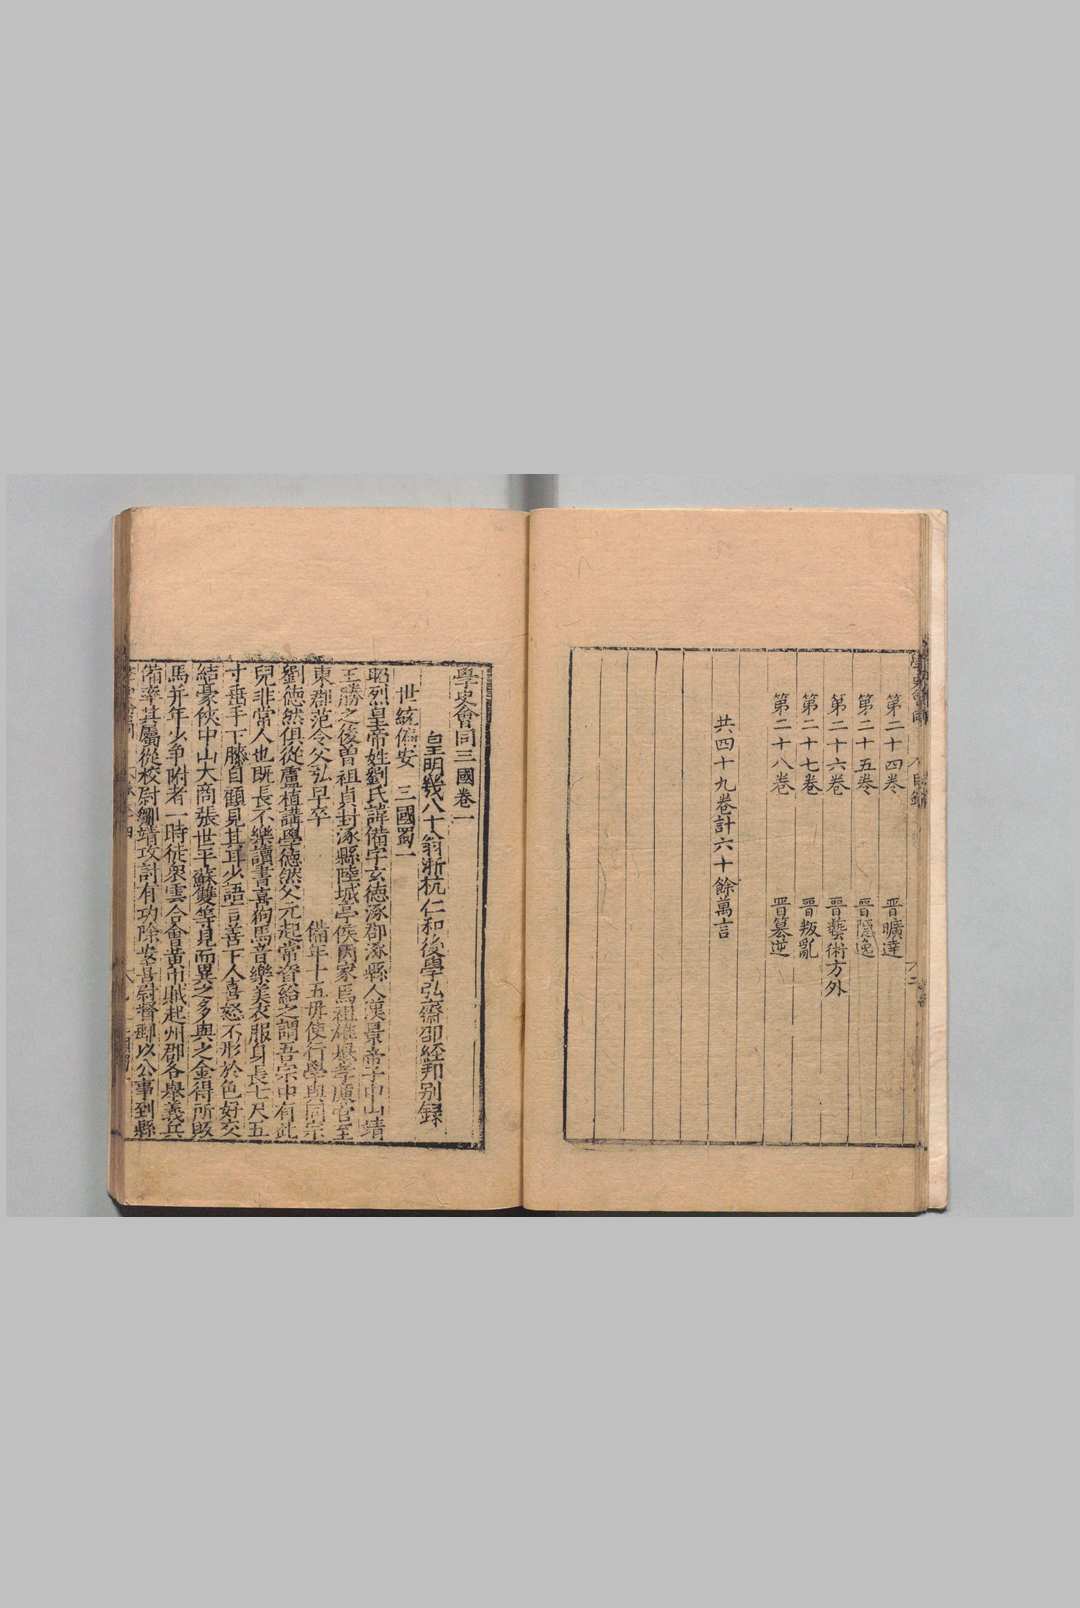 第二十四卷 晋曠達
第二十五卷 晋隱逸
第二十六卷 晋藝術方外
第二十七卷 晋叛亂
第二十八卷 晋篡逆
共四十九卷計六十餘萬言
學史會同三國卷一
皇明幾八十翁浙杭仁和後學弘齋邵經邦别錄
世統偏安 三國蜀一
昭烈皇帝姓劉氏諱備字玄德涿郡涿縣人漢景帝子中山靖
王勝之後曽祖貞封涿縣陸城亭侯因家焉祖雄舉孝廉官至
東郡范令父弘早卒 備年十五毋使行學與同宗
劉德然俱從盧植講學德然父元起常資給之謂吾宗中有此
兒非常人也既長不樂讀書喜狗馬音樂美衣服身長七尺五
寸垂手下膝自顧見其耳少語言善下人喜怒不形於色好交
結豪俠中山大商張世平蘇雙等見而異之多與之金得所販
馬并年少争附者一時徒衆雲合會黄巾賊起州郡各舉義兵
備率其屬從校尉鄒靖攻討有功除安喜尉督郵以公事到縣